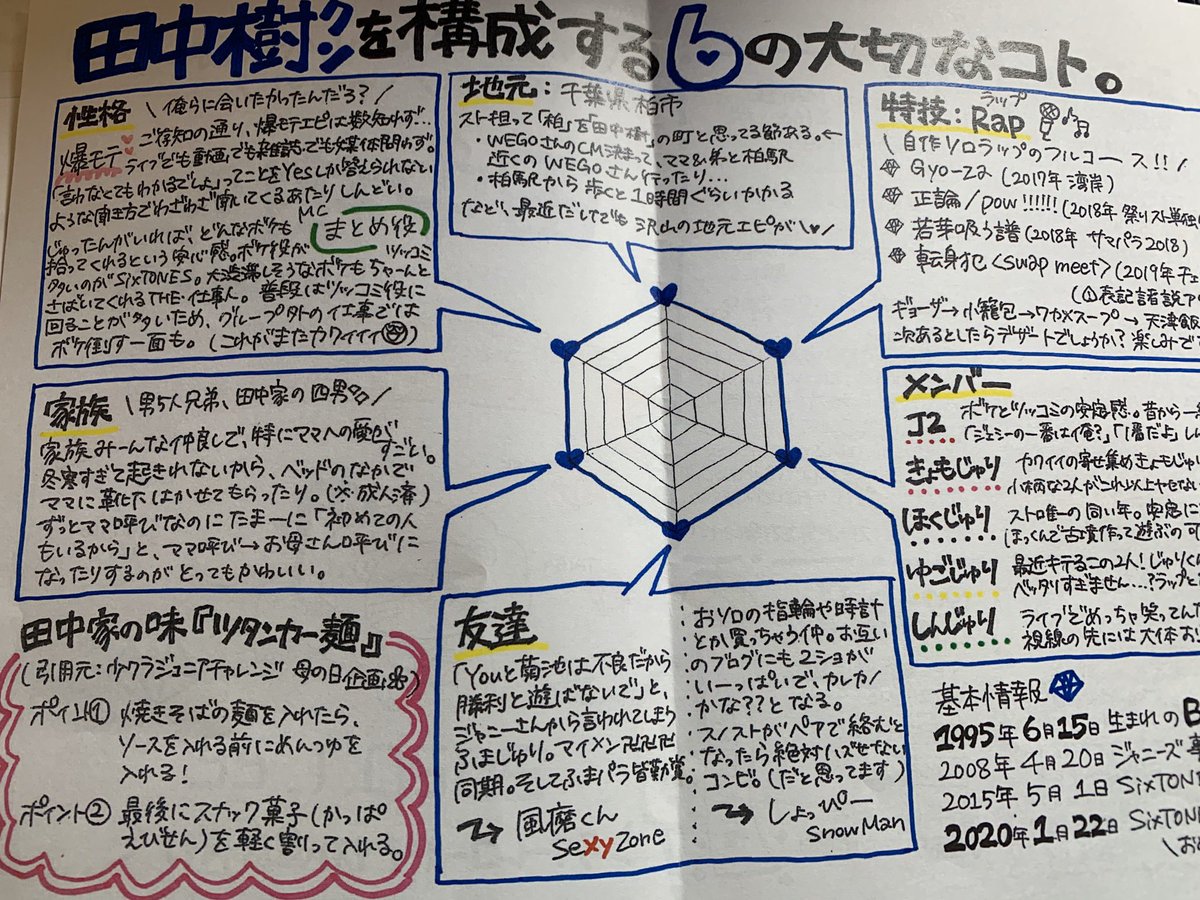 田中樹クンを構成する6の大切なコト。
性格 \ 俺らに会いたかったんだろ? /
爆モテ ご存知の通り、爆モテエピは数知れず…
ライブでも動画でも雑誌でも媒体問わず。
「言わなくてもわかるでしょ」ってことをYesしか答えられない
ような聞き方でわざわざ聞いてくるあたりしんどい。
MC
じゅったんがいれば、どんなボケも まとめ役
拾ってくれるという安心感。ボケ役が ツッコミ
多いのがSixTONES。大渋滞しそうなボケもちゃーんと
さばいてくれるTHE・仕事人。普段はツッコミ役に
回ることが多いため、グループ外の仕事では
ボケ倒す一面も。(これがまたカワイイィ)
地元:千葉県柏市
スト担って「柏」を「田中樹」の町と思ってる節ある。←
・WEGOさんのCM決まって、ママ&弟と柏駅
近くのWEGOさん行ったり…
・柏駅から歩くと1時間ぐらいかかる
など、最近だしでも沢山の地元エピが\♡/
特技:Rap
ラップ
\ 自作ソロラップのフルコース!! /
Gyo-Za (2017年 湾岸)
正論/pow!!!!!! (2018年 祭りスト単独
若芽吸う譜 (2018年 サマパラ2018)
転身犯<swap meet> (2019年チェ
(①表記諸説ア
ギョーザ→小籠包→ワカメスープ→天津飯
次あるとしたらデザートでしょうか?楽しみで
家族 \男5人兄弟、田中家の四男/
家族みーんな仲良しで、特にママへの愛が
すごい。
冬寒すぎて起きれないから、ベッドのなかで
ママに靴下はかせてもらったり。(※成人済)
ずっとママ呼びなのにたまーに「初めての人
もいるから」と、ママ呼び→お母さん呼びに
なったりするのがとってもかわいい。
メンバー
J2 ボケとツッコミの安定感。昔から一
「ジェシーの一番は俺?」「1番だよ」しん
きょもじゅり カワイイの寄せ集めきょもじゅり
小柄な2人がこれ以上ヤせない
ほくじゅり スト唯一の同い年。安定に
ほっくんで古墳作って遊ぶの可
ゆごじゅり 最近キテるこの2人!じゅりく
ベッタリすぎません…?ラップと
しんじゅり ライブでめっちゃ笑ってん
視線の先には大体お
田中家の味『ツタンカー麺』
(引用元:少クラジュニアチャレンジ 母の日企画)
ポイント① 焼きそばの麺を入れたら、
ソースを入れる前にめんつゆを
入れる!
ポイント② 最後にスナック菓子(かっぱ
えびせん)を軽く割って入れる。
友達
「Youと菊池は不良だから
勝利と遊ばないで」と、
ジャニーさんから言われてしまう
ふまじゅり。マイメン卍卍卍
同期。そしてふまパラ皆勤賞。
風磨くん
Sexy Zone
おソロの指輪や時計
とか買っちゃう仲。お互い
のブログにも2ショが
いーっぱいで、カレカノ
かな??となる。
スノストがペアで絡むと
なったら絶対ハズせない
コンビ。(だと思ってます)
しょっぴー
Snow Man
基本情報
1995年6月15日 生まれのB
2008年4月20日 ジャニーズ事
2015年5月1日 SixTON
2020年1月22日 SixTONE
\お